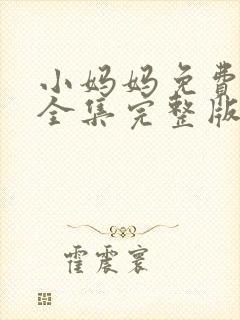 小妈妈免费
全集完整版
霍震寰